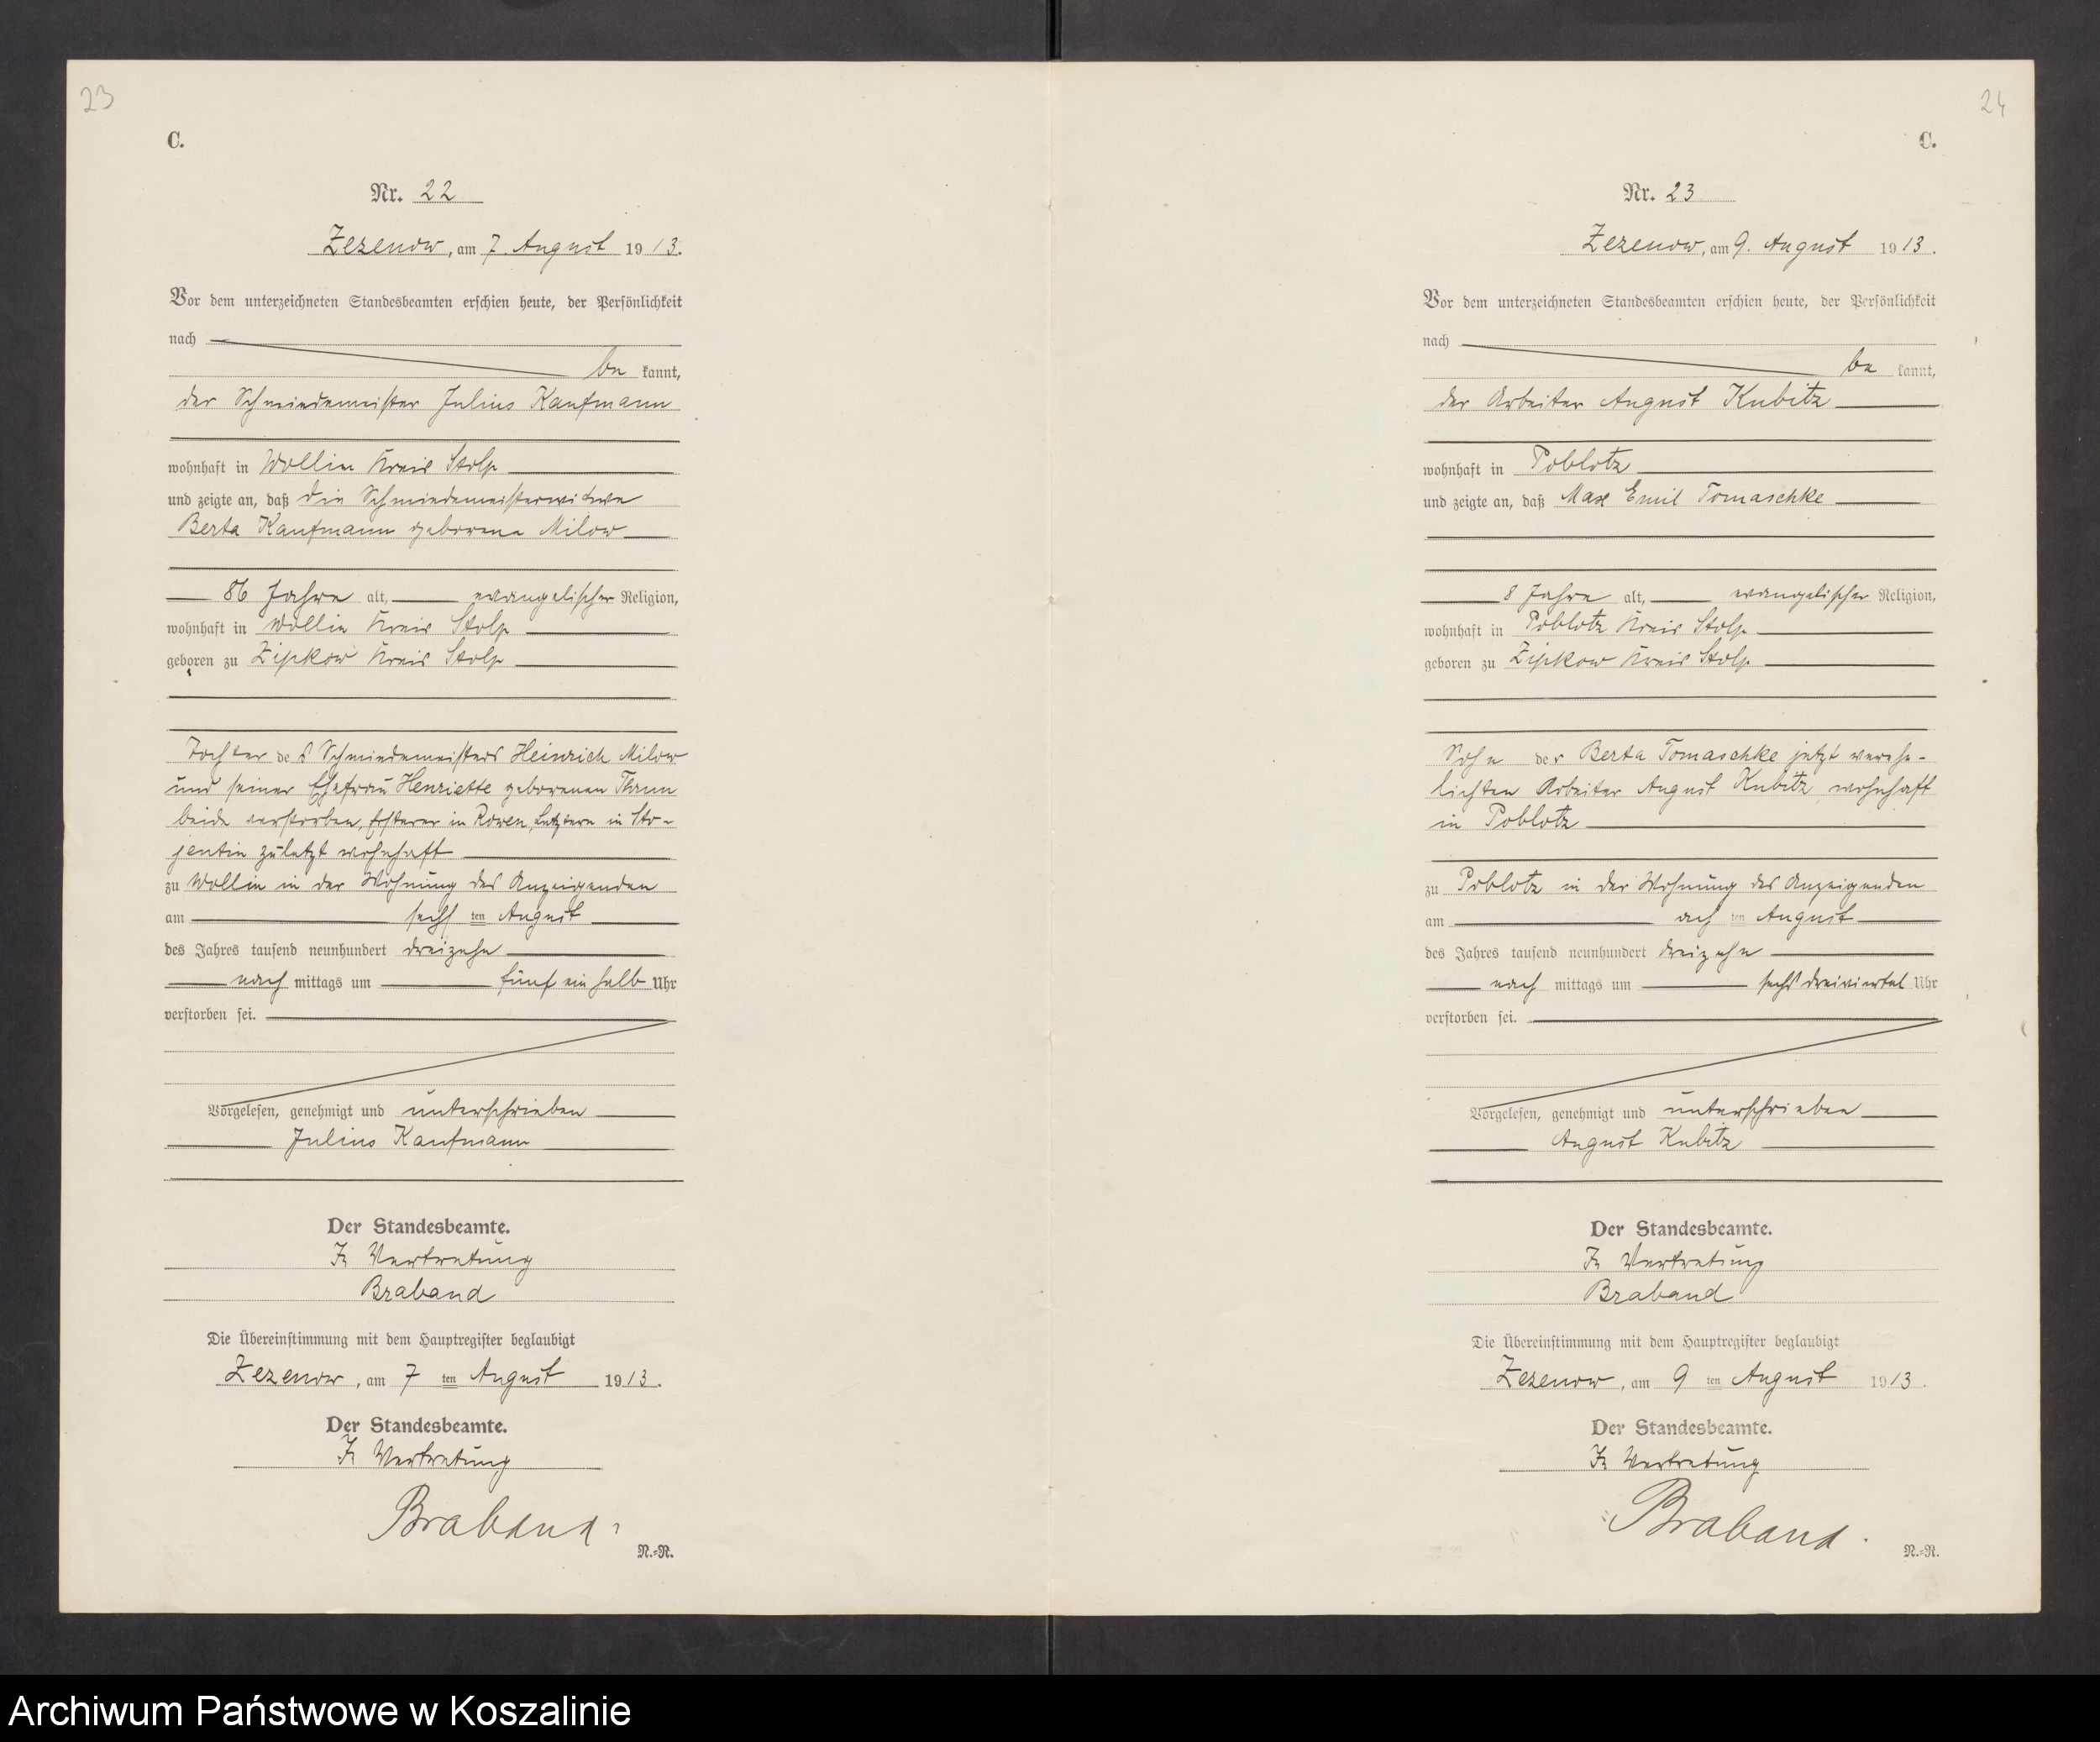 23
C.
Nr. 22
Zezenow, am 7. August 1913.
Vor dem unterzeichneten Standesbeamten erschien heute, der Persönlichkeit
nach
be kannt,
der Schmiedemeister Julius Kaufmann
wohnhaft in Wollin Kreis Stolp
und zeigte an, daß die Schmiedemeisterwitwe
Berta Kaufmann geborene Milow
86 Jahre alt, evangelischer Religion,
wohnhaft in Wollin Kreis Stolp
geboren zu Zipkow Kreis Stolp
Tochter des Schmiedemeisters Heinrich Milow
und seiner Ehefrau Henriette geborenen Thrun
beide verstorben, Ersterer in Rowen, Letztere in Sto-
jentin zuletzt wohnhaft
zu Wollin in der Wohnung des Anzeigenden
am sechsten August
des Jahres tausend neunhundert dreizehn
nach mittags um fünf ein halb Uhr
verstorben sei.
Vorgelesen, genehmigt und unterschrieben
Julius Kaufmann
Der Standesbeamte.
In Vertretung
Braband
Die Übereinstimmung mit dem Hauptregister beglaubigt
Zezenow, am 7 ten August 1913.
Der Standesbeamte.
In Vertretung
Braband.
N.-R.
24
C.
Nr. 23
Zezenow, am 9. August 1913.
Vor dem unterzeichneten Standesbeamten erschien heute, der Persönlichkeit
nach
be kannt,
der Arbeiter August Kubitz
wohnhaft in Poblotz
und zeigte an, daß Max Emil Tomaschke
8 Jahre alt, evangelischer Religion,
wohnhaft in Poblotz Kreis Stolp
geboren zu Zipkow Kreis Stolp
Sohn der Berta Tomaschke jetzt verehe-
lichten Arbeiter August Kubitz, wohnhaft
in Poblotz
zu Poblotz in der Wohnung des Anzeigenden
am ach ten August
des Jahres tausend neunhundert dreizehn
nach mittags um sechs dreiviertel Uhr
verstorben sei.
Vorgelesen, genehmigt und unterschrieben
August Kubitz
Der Standesbeamte.
In Vertretung
Braband
Die Übereinstimmung mit dem Hauptregister beglaubigt
Zezenow, am 9 ten August 1913.
Der Standesbeamte.
In Vertretung
Braband.
N.-R.
Archiwum Państwowe w Koszalinie